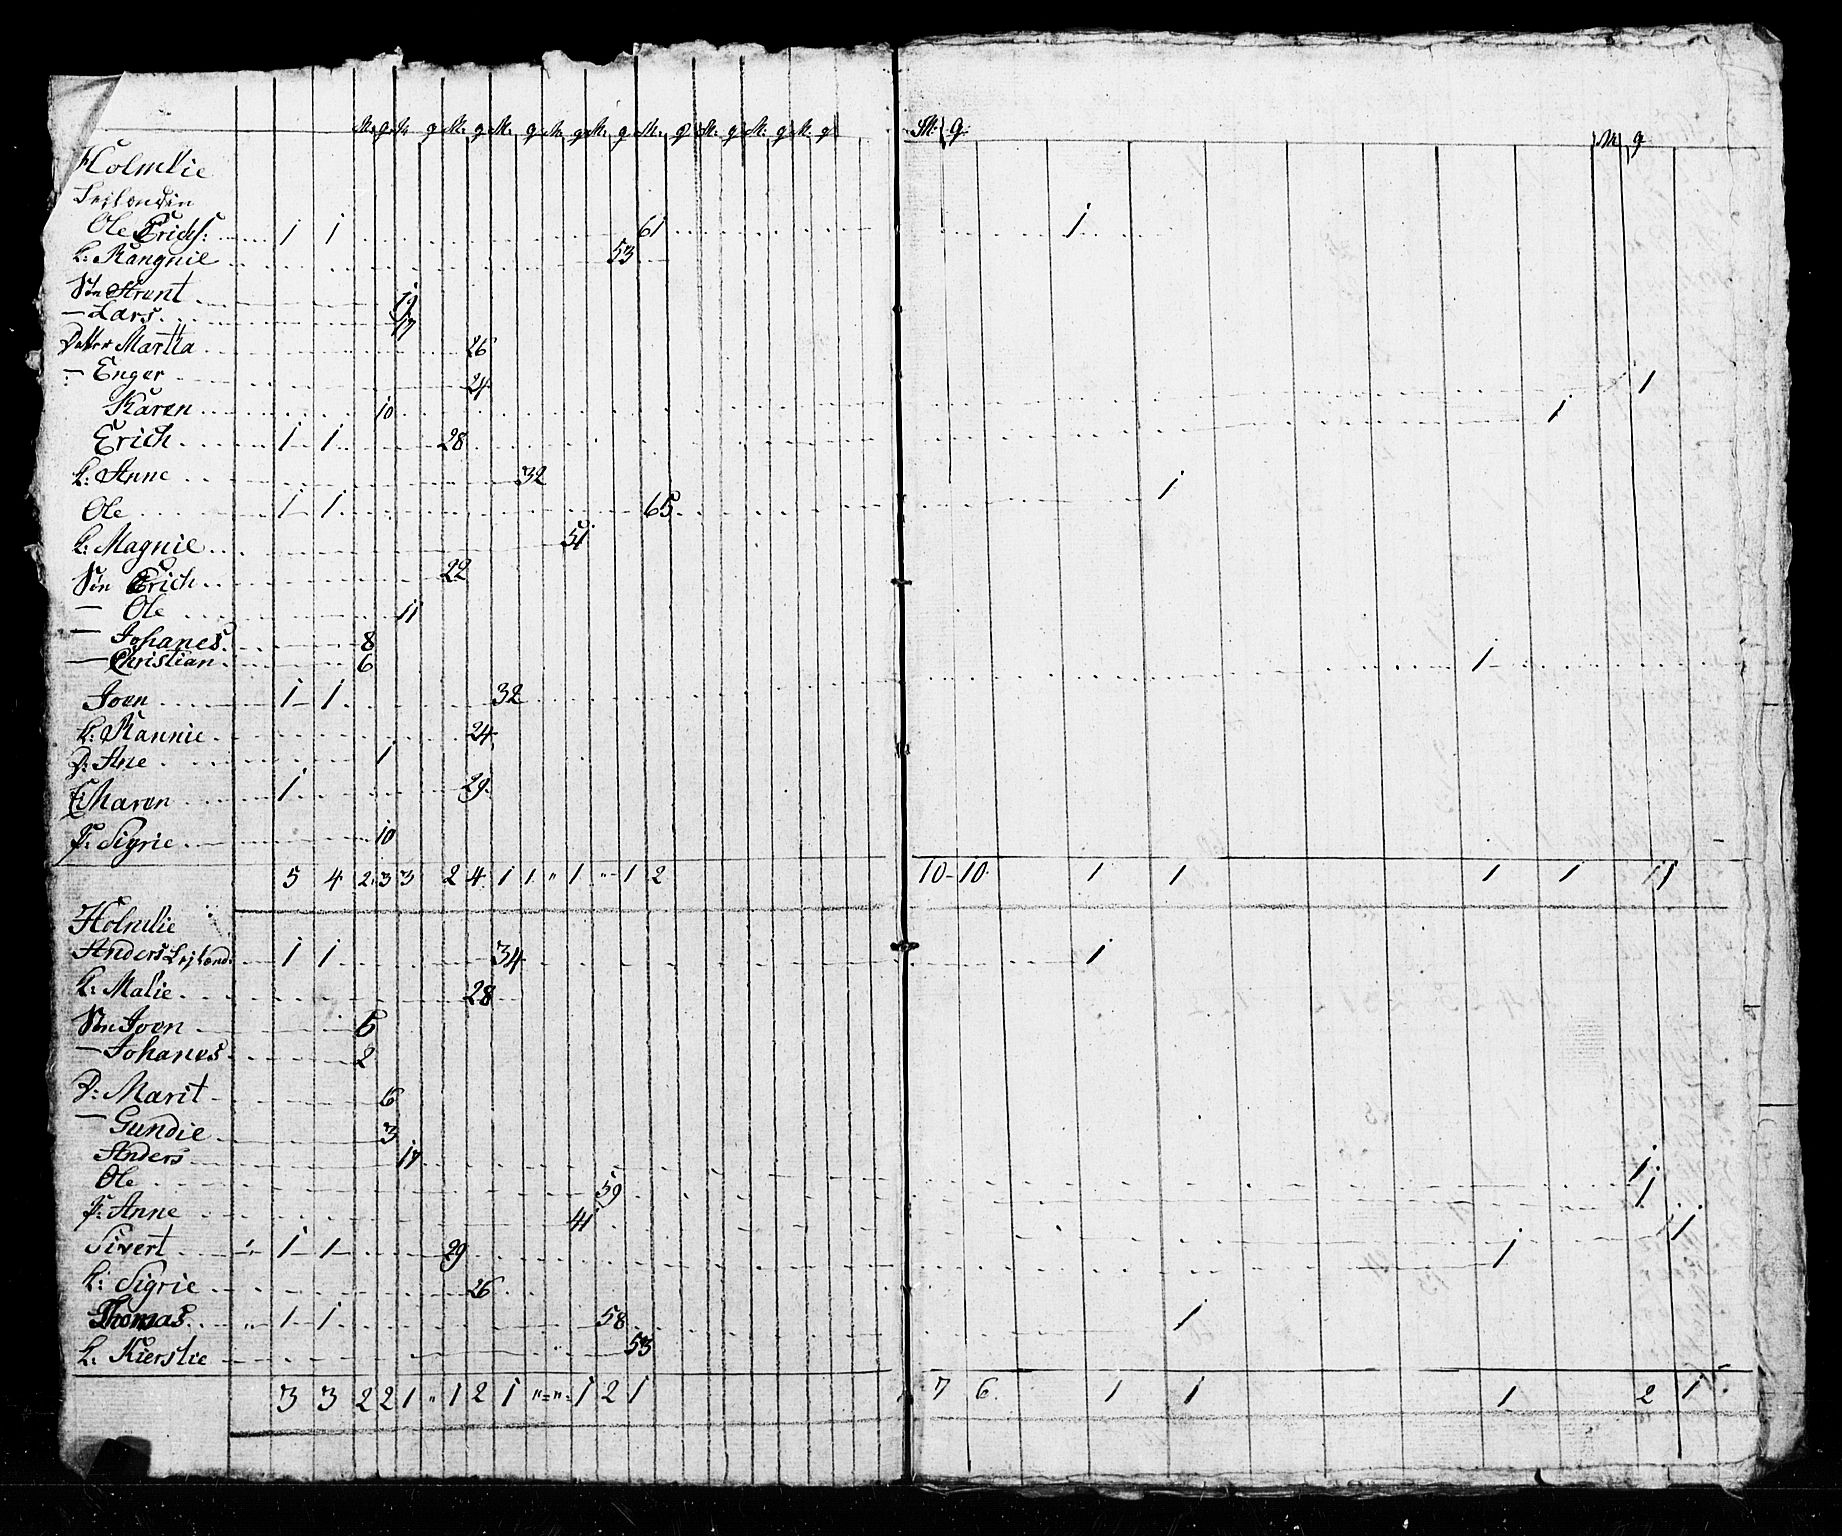 M: q M: q M: q M: q M: q M: q M: q M: q M: q M: q M: q M: q M: q
Holmlie
Leilænding
Ole Erichs: 1 1 61 1
K: Rangnie 53
Søn Arent 19
— Lars 17
Datter Martha 26
— Enger 24 1
Karen 10 1
Erich 1 1 28
K: Anne 32 1
Ole 1 1 65
K: Magnie 51
Søn Erich 22
— Ole 11
— Johanes 8
— Christian 6 1
Joen 1 1 32
K: Rannie 24
D: Ane 1
E: Maren 1 29
P: Sigrie 10
5 4 2 3 3 2 4 1 1 " 1 " 1 2 10 10 1 1 1 1 11
Holmlie
Anders Lejlænd: 1 1 34 1
K: Malie 28
Søn Joen 5
— Johanes 2
D: Marit 6
— Gundie 3
Anders 17 1
Ole 59 1
P: Anne 41 1
Sivert " 1 1 29 1
K: Sigrie 26
Thomas " 1 1 58 1
K: Kierstie 53
3 3 2 2 1 " 1 2 1 " " 1 2 1 7 6 1 1 1 2 1